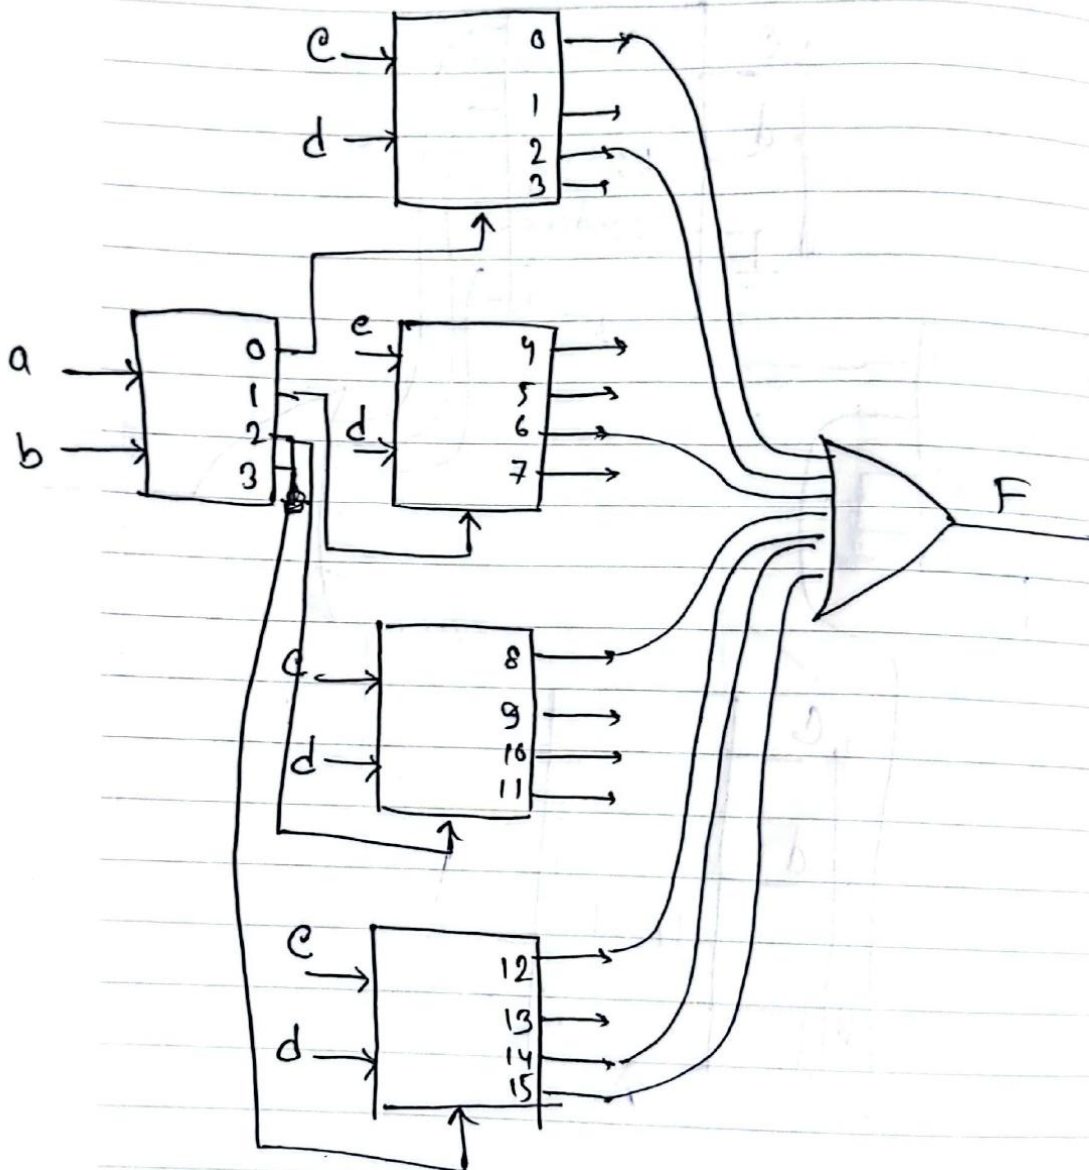 C
d
0
1
2
3
a
b
0
1
2
3
c
d
4
5
6
7
F
C
d
8
9
10
11
C
d
12
13
14
15